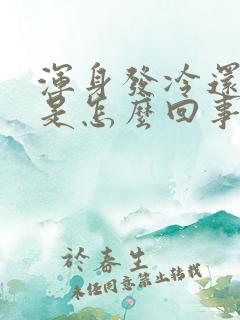 渾身發冷還
是怎麼回事
於春生
未經同意禁止轉載